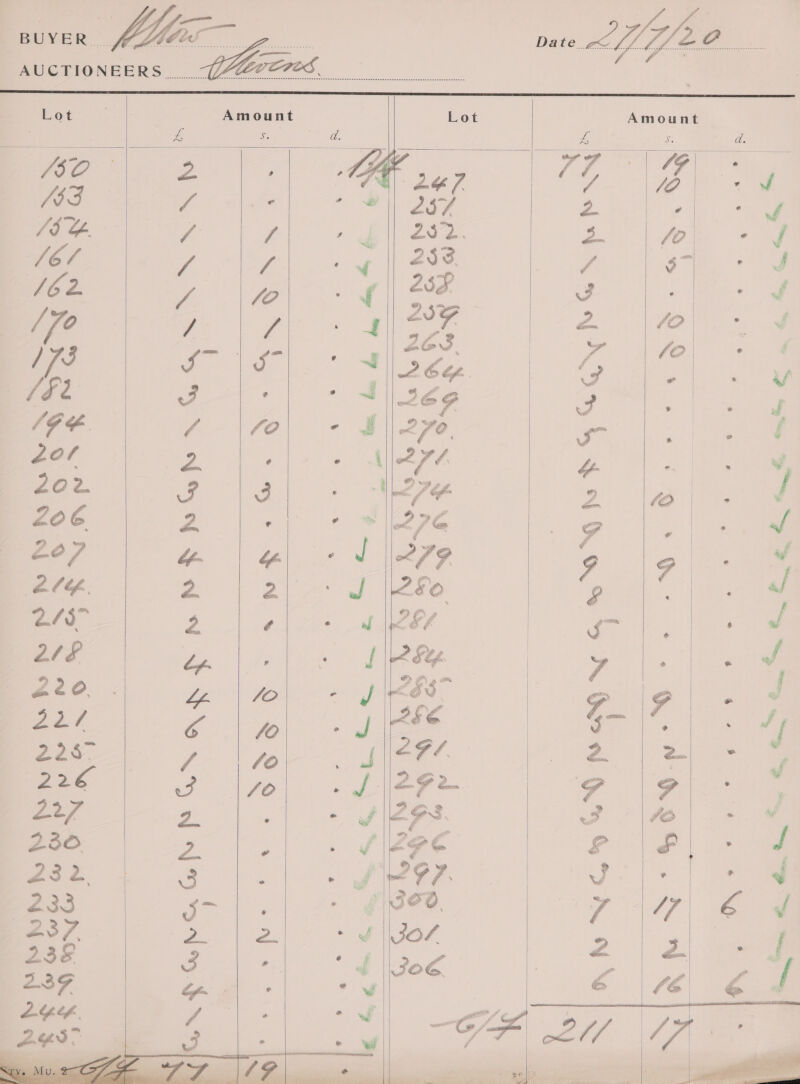 BUYER Alston
Date 27/7/20
AUCTIONEERS Stevens.
Lot Amount
£ s. d.
150 2 . .
153 1 . .
154 1 1 .
161 1 1 .
162 1 10 .
170 1 1 .
173 5 5 .
182 3 . .
194 1 10 .
201 2 . .
202 3 3 .
206 2 . .
207 4 4 .
214 2 2 .
215 2 . .
218 4 . .
220 4 10 .
221 6 10 .
225 1 10 .
226 3 10 .
227 2 . .
230 2 . .
232 3 . .
233 5 . .
237 2 2 .
238 3 . .
239 4 . .
244 1 . .
245 3 . .
C/F 77 19 .
Lot Amount
£ s. d.
B/F 77 19 .
247 1 10 .
251 2 . .
252 2 10 .
253 1 5 .
258 3 . .
259 2 10 .
263 7 10 .
264 3 . .
269 3 . .
270 5 . .
271 4 . .
274 2 10 .
276 9 . .
279 9 9 .
280 8 . .
281 5 . .
284 7 . .
285 9 9 .
286 5 . .
291 2 2 .
292 9 9 .
293 3 10 .
296 8 8 .
297 3 . .
300 7 17 6
301 2 2 .
306 6 16 6
C/F 211 17 .